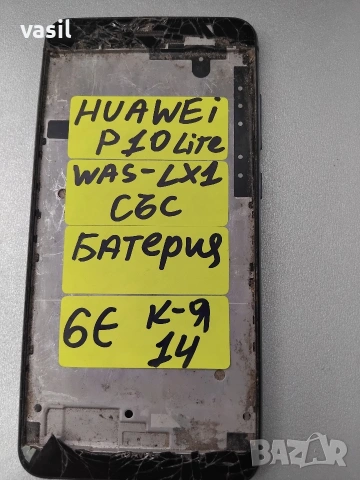 vasil
HUAWEi
P10Lite
WAS-LX1
СЪС
БАТЕРИЯ
6E К-Я
14
BAZAR